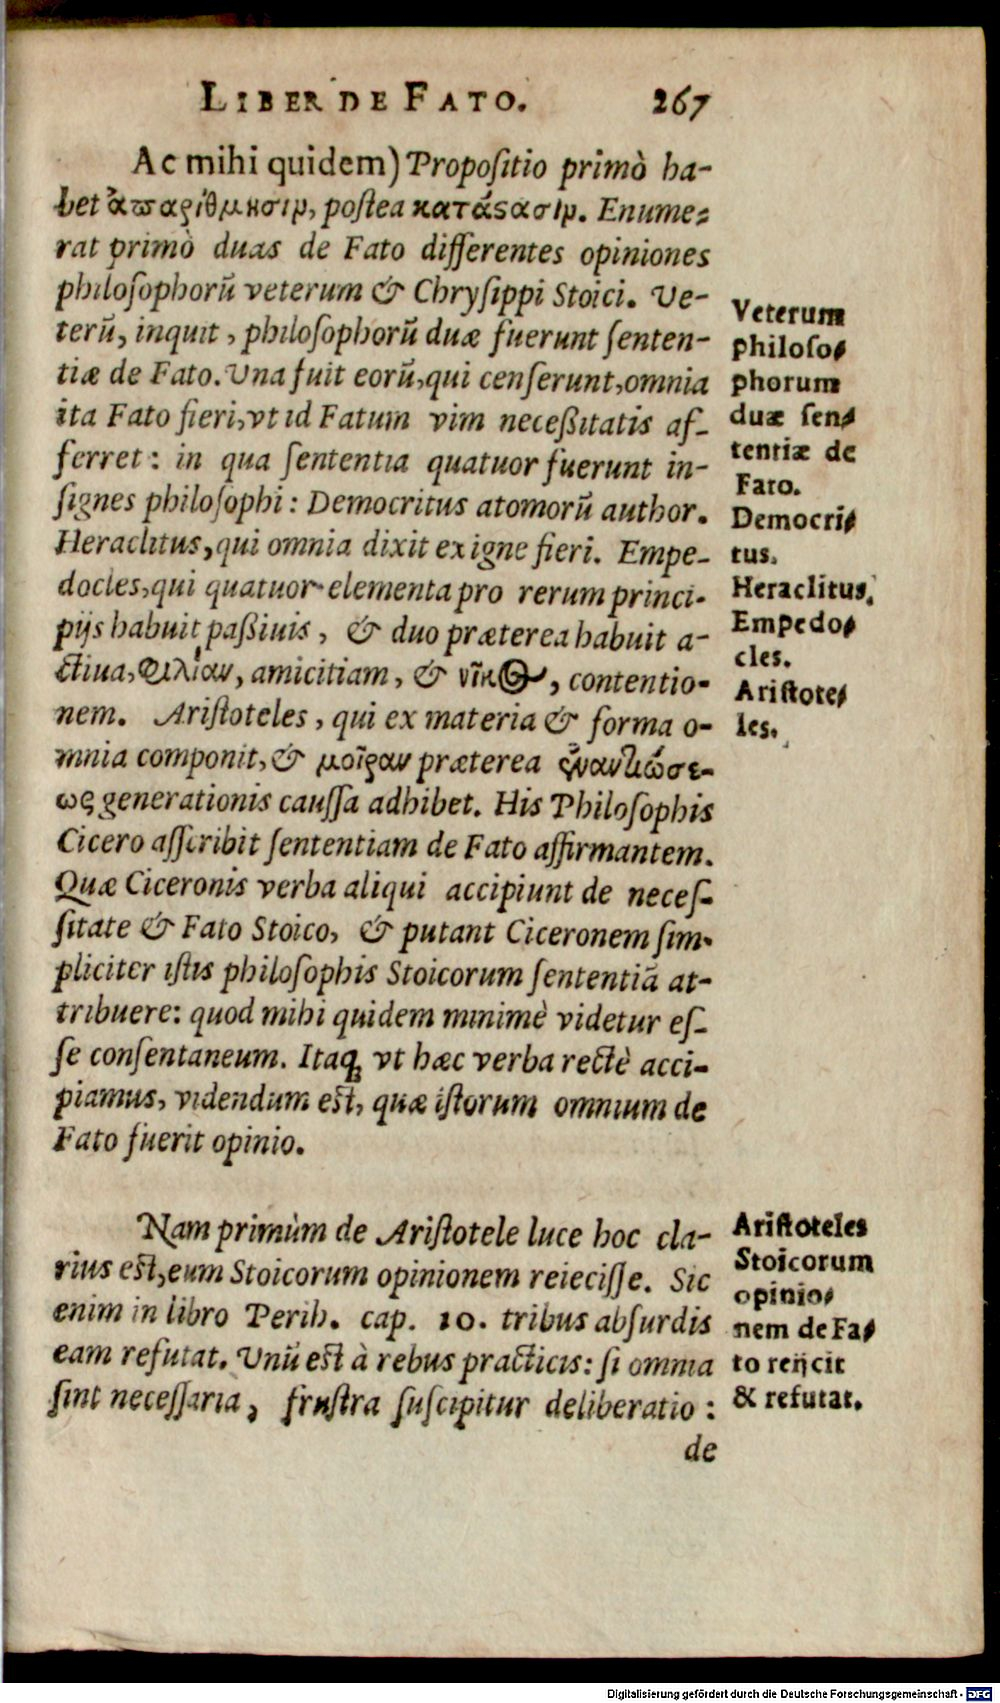 LIBER DE FATO. 267
Ac mihi quidem) Propoſitio primò ha-
bet ἀπαρίθμησιν, poſtea κατάϛασιν. Enume-
rat primò duas de Fato differentes opiniones
philoſophorũ veterum & Chryſippi Stoici. Ve-
terũ, inquit, philoſophorũ duæ fuerunt ſenten-
tiæ de Fato. Vna fuit eorũ, qui cenſerunt, omnia
ita Fato fieri, vt id Fatum vim neceßitatis af-
ferret: in qua ſententia quatuor fuerunt in-
ſignes philoſophi: Democritus atomorũ author.
Heraclitus, qui omnia dixit ex igne fieri. Empe-
docles, qui quatuor elementa pro rerum princi-
pijs habuit paßiuis, & duo præterea habuit a-
ctiua, φιλίαν, amicitiam, & νῖκος, contentio-
nem. Ariſtoteles, qui ex materia & forma o-
mnia componit, & μοῖραν præterea ἐναντιώσε-
ως generationis cauſſa adhibet. His Philoſophis
Cicero aſſcribit ſententiam de Fato affirmantem.
Quæ Ciceronis verba aliqui accipiunt de neceſ-
ſitate & Fato Stoico, & putant Ciceronem ſim-
pliciter iſtis philoſophis Stoicorum ſententiã at-
tribuere: quod mihi quidem minimè videtur eſ-
ſe conſentaneum. Itaq; vt hæc verba rectè acci-
piamus, videndum eſt, quæ iſtorum omnium de
Fato fuerit opinio.
Veterum
philoſo-
phorum
duæ ſen-
tentiæ de
Fato.
Democri-
tus.
Heraclitus.
Empedo-
cles.
Ariſtote-
les.
Nam primùm de Ariſtotele luce hoc cla-
rius eſt, eum Stoicorum opinionem reieciſſe. Sic
enim in libro Perih. cap. 10. tribus abſurdis
eam refutat. Vnũ eſt à rebus practicis: ſi omnia
ſint neceſſaria, fruſtra ſuſcipitur deliberatio:
de
Ariſtoteles
Stoicorum
opinio-
nem de Fa-
to reijcit
& refutat.
Digitalisierung gefördert durch die Deutsche Forschungsgemeinschaft - DFG